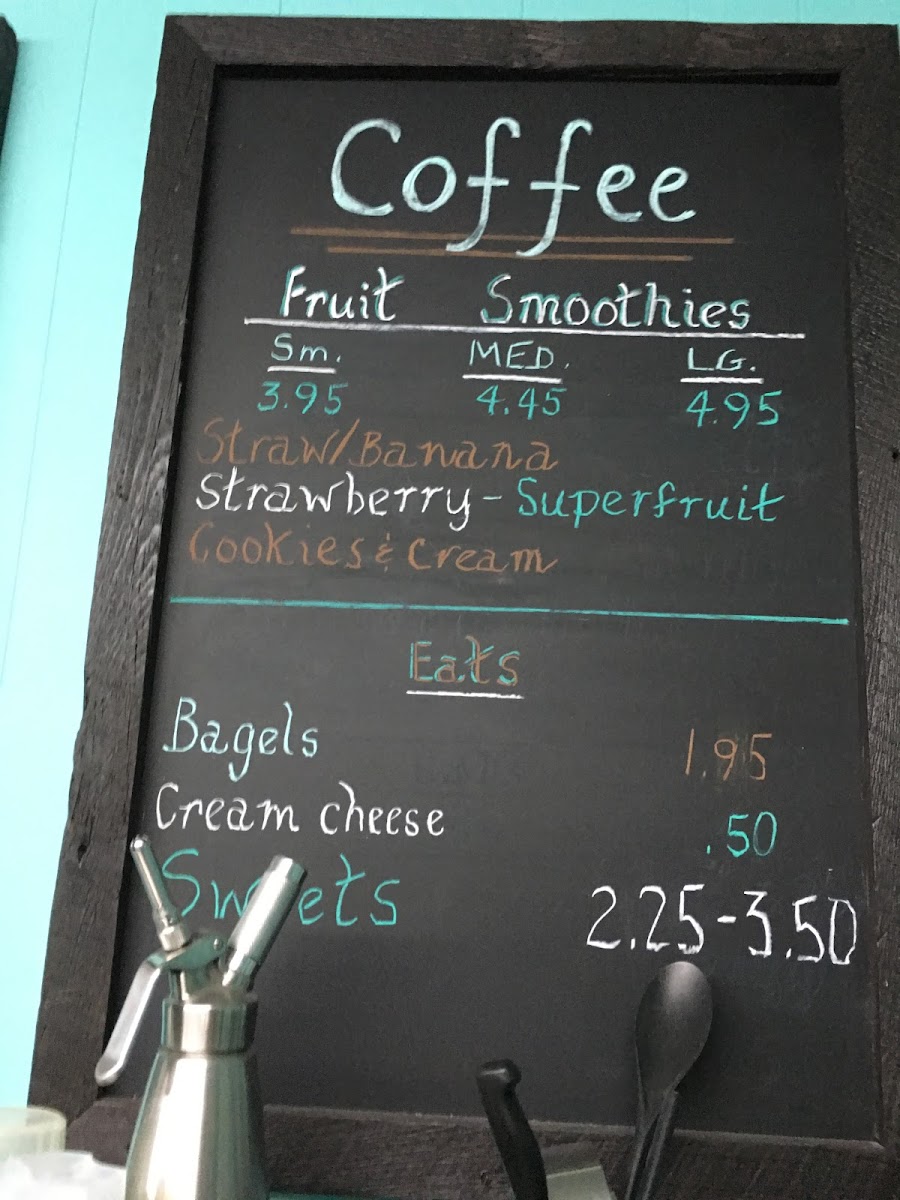 Coffee
Fruit Smoothies
Sm. MED. LG.
3.95 4.45 4.95
Straw/Banana
Strawberry - Superfruit
Cookies & Cream
Eats
Bagels 1.95
Cream cheese .50
Sweets 2.25-3.50